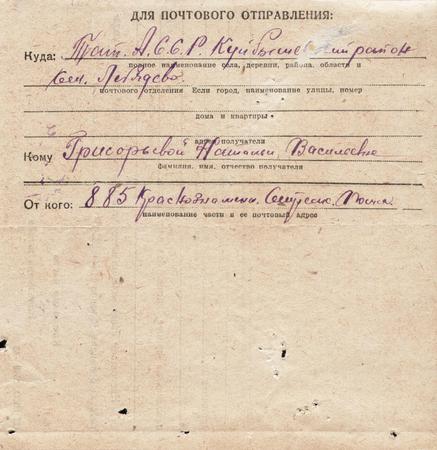 ДЛЯ ПОЧТОВОГО ОТПРАВЛЕНИЯ:
Куда: Тат. А.С.С.Р. Куйбышевский район
полное наименование села, деревни, района, области и
сел.
почтового отделения Если город, наименование улицы, номер
дома и квартиры
адрес получателя
Кому Григорьевой Натальи Василевне
фамилия, имя, отчество получателя
От кого: 885 Краснознамен. Стрелк. Полка
наименование части и ее почтовый адрес